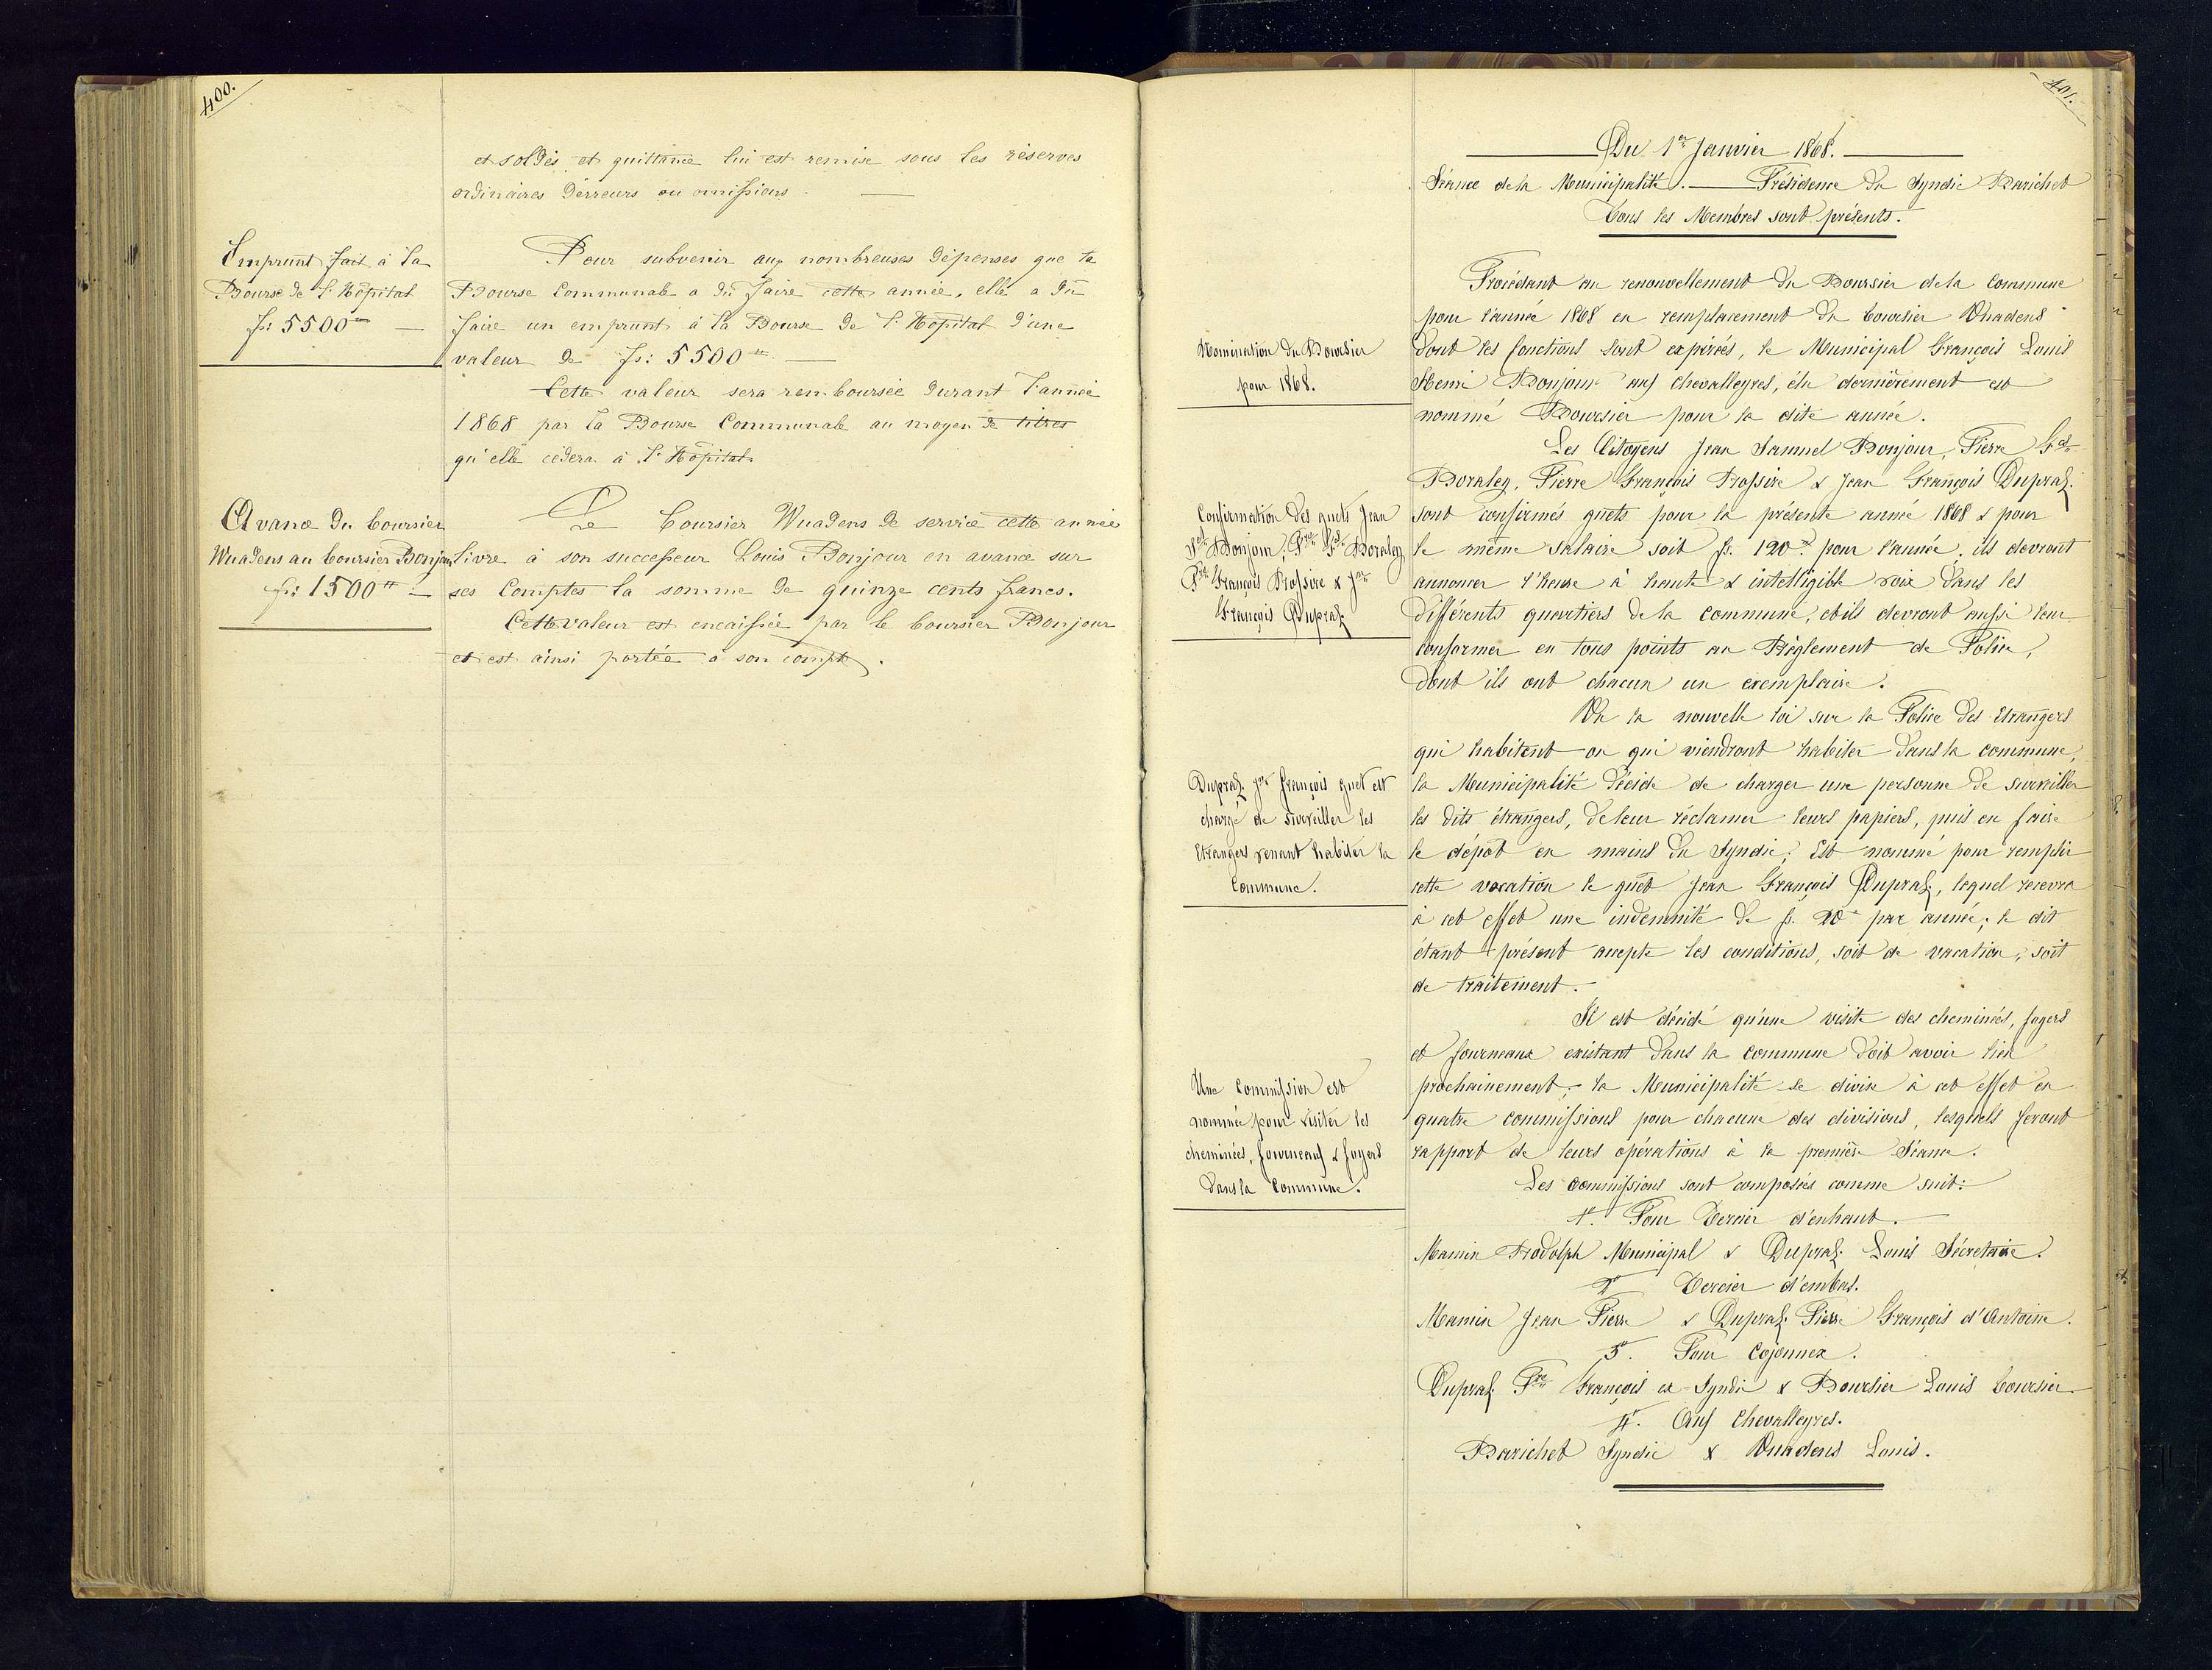 400.
et soldés et quittance lui est remise sous les réserves
ordinaires d'erreurs ou omissions. —
Emprunt fait à la
Bourse de l'Hôpital
fs: 5500 —
Pour subvenir aux nombreuses dépenses que la
Bourse Communale a dû faire cette année, elle a dû
faire un emprunt à la Bourse de l'Hôpital d'une
valeur de fs: 5500 —
Cette valeur sera remboursée durant l'année
1868 par la Bourse Communale au moyen de titres
qu'elle cédera à l'Hôpital.
Avance du boursier
Wuadens au boursier Bonjour
fs: 1500 —
Le boursier Wuadens de service cette année
livre à son successeur Louis Bonjour en avance sur
ses Comptes la somme de quinze cents francs.
Cette valeur est encaissée par le boursier Bonjour
et est ainsi portée à son compte.
401.
Du 1er Janvier 1868.
Séance de la Municipalité. — Présidence du Syndic Barichet
Tous les Membres sont présents.
Nomination du Boursier
pour 1868.
Procédant au renouvellement du Boursier de la Commune
pour l'année 1868 en remplacement du boursier Vuadens
dont les fonctions sont expirées, le Municipal François Louis
Henri Bonjour aux Chevalleyres, élu dernièrement est
nommé Boursier pour la dite année.
Confirmation des guets Jean
Sel Bonjour, Pre Fs Boraley
Pre François Brossire & Jean
François Dupraz
Les Citoyens Jean Samuel Bonjour, Pierre
Boraley, Pierre François Brossire & Jean François Dupraz
sont confirmés guets pour la présente année 1868 & pour
le même salaire soit fs. 120 pour l'année. ils devront
annoncer l'heure à haute & intelligible voix dans les
différents quartiers de la commune, et ils devront aussi leur
conformer en tous points au Règlement de Police,
dont ils ont chacun un exemplaire.
Dupraz Jn François guet est
chargé de surveiller les
Etrangers venant habiter la
Commune.
Vu la nouvelle loi sur la Police des Etrangers
qui habitent ou qui viendront habiter dans la commune,
la Municipalité décide de charger une personne de surveiller
les dits étrangers, de leur réclamer leurs papiers, puis en faire
le dépôt en mains du Syndic; Est nommé pour remplir
cette vocation le guet Jean François Dupraz, lequel recevra
à cet effet une indemnité de fs. 20 par année; le dit
étant présent accepte les conditions, soit de vacation, soit
de traitement.
Une Commission est
nommée pour visiter les
cheminées, fourneaux & foyers
dans la Commune.
Il est décidé qu'une visite des cheminées, foyers
et fourneaux existant dans la commune doit avoir lieu
prochainement; la Municipalité se divise à cet effet en
quatre commissions pour chacune des divisions, lesquels feront
rapport de leurs opérations à la première Séance.
Les commissions sont composées comme suit:
1o. Pour Tercier d'enhaut. —
Mamin Rodolph Municipal & Dupraz Louis Sécretaire.
2o Tercier d'embas.
Mamin Jean Pierre & Dupraz Pierre François d'Antoine.
3o. Pour Cojonnex.
Dupraz Pre François ex-Syndic & Boursier Louis boursier.
4o. Aux Chevalleyres.
Barichet Syndic & Vuadens Louis.